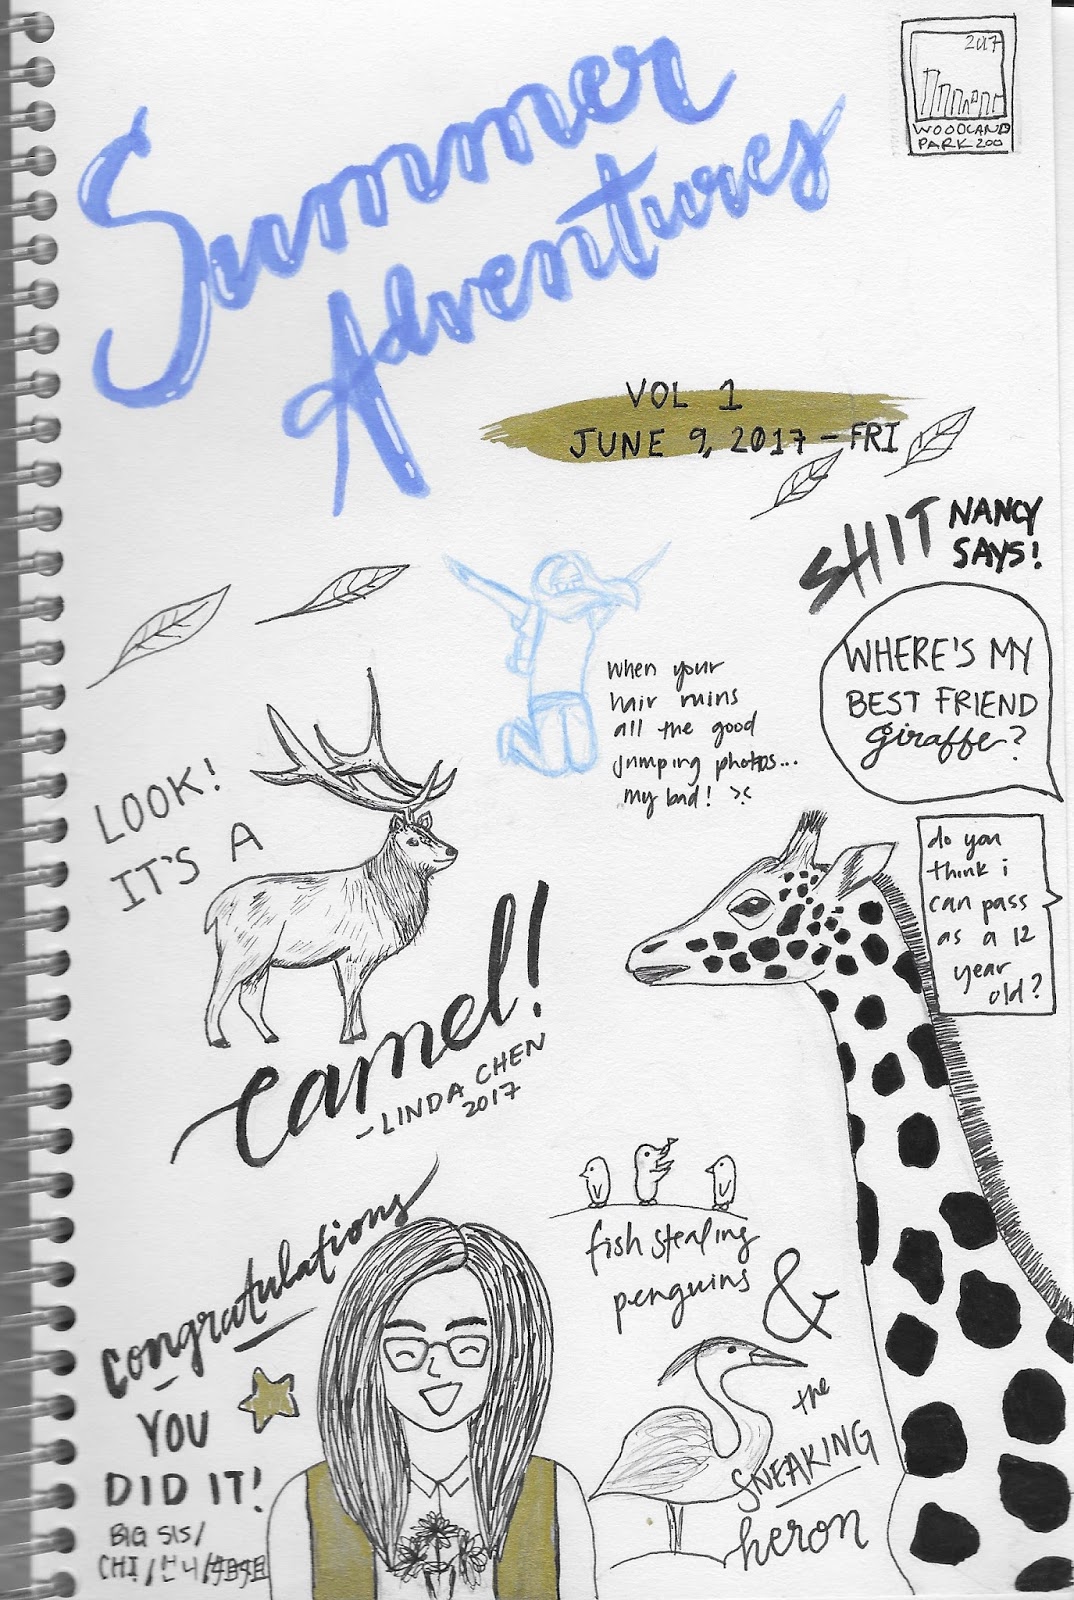 Summer
Adventures
2017
WOODLAND
PARK ZOO
VOL 1
JUNE 9, 2017 - FRI
SHIT NANCY
SAYS!
WHERE'S MY
BEST FRIEND
giraffe?
when your
hair ruins
all the good
jumping photos...
my bad! >:<
LOOK!
IT'S A
camel!
- LINDA CHEN
2017
do you
think i
can pass
as a 12
year
old?
fish stealing
penguins
&
the
SNEAKING
heron
congratulations
YOU
DID IT!
BIG SIS/
CHỊ/언니/姐姐